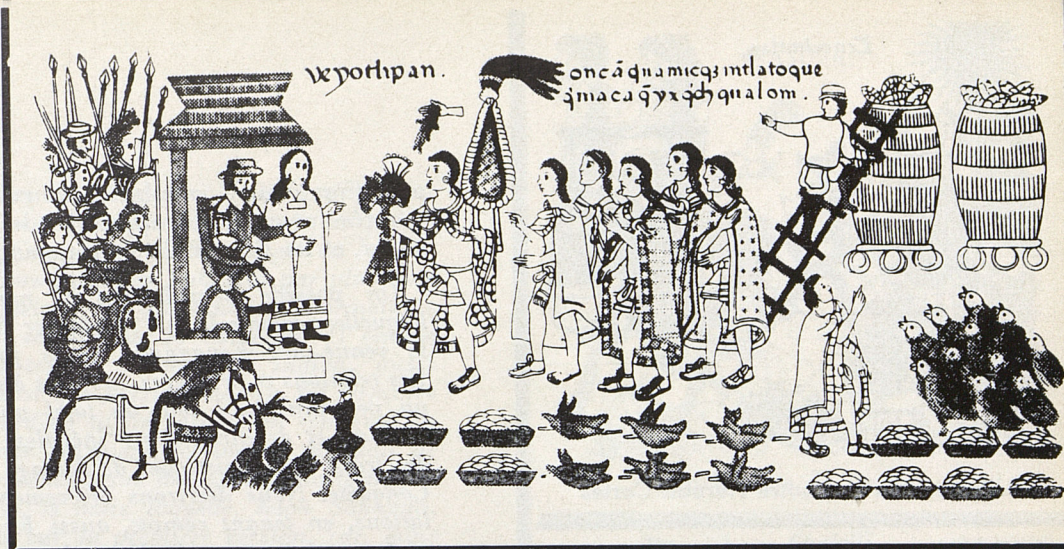 veyotlipan.
oncā quamicqȝ intlatoque
q̄maca q̄yxq̄ch qualom.